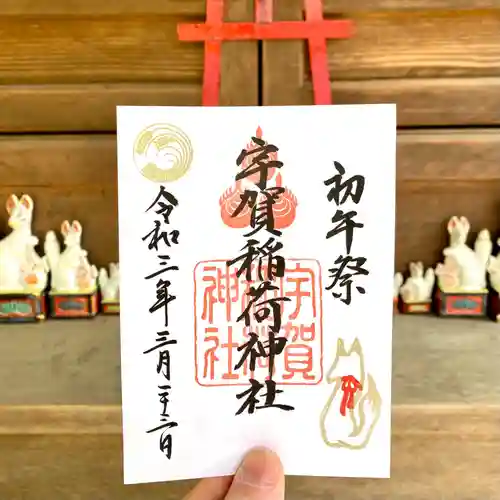 初午祭
宇賀稲荷神社
宇賀稲荷神社
令和三年三月二十六日